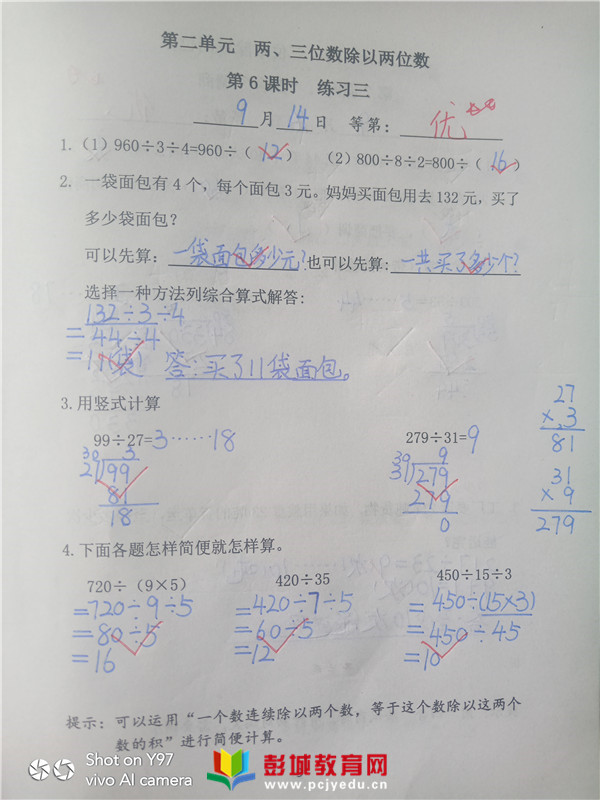 第二单元 两、三位数除以两位数
第6课时 练习三
9月14日 等第：优
1.（1）960÷3÷4=960÷（12） （2）800÷8÷2=800÷（16）
2. 一袋面包有4个，每个面包3元。妈妈买面包用去132元，买了
多少袋面包？
可以先算：一袋面包多少元?也可以先算:一共买了多少个?
选择一种方法列综合算式解答:
132÷3÷4
=44÷4
=11(袋) 答:买了11袋面包。
3.用竖式计算
99÷27=3……18 279÷31=9
30 3
27 99
81
18
30 9
31 279
279
0
27
×3
81
31
×9
279
4.下面各题怎样简便就怎样算。
720÷（9×5） 420÷35 450÷15÷3
=720÷9÷5 =420÷7÷5 =450÷(15×3)
=80÷5 =60÷5 =450÷45
=16 =12 =10
提示：可以运用“一个数连续除以两个数，等于这个数除以这两个
数的积”进行简便计算。
Shot on Y97
vivo AI camera
彭城教育网
www.pcjyedu.cn